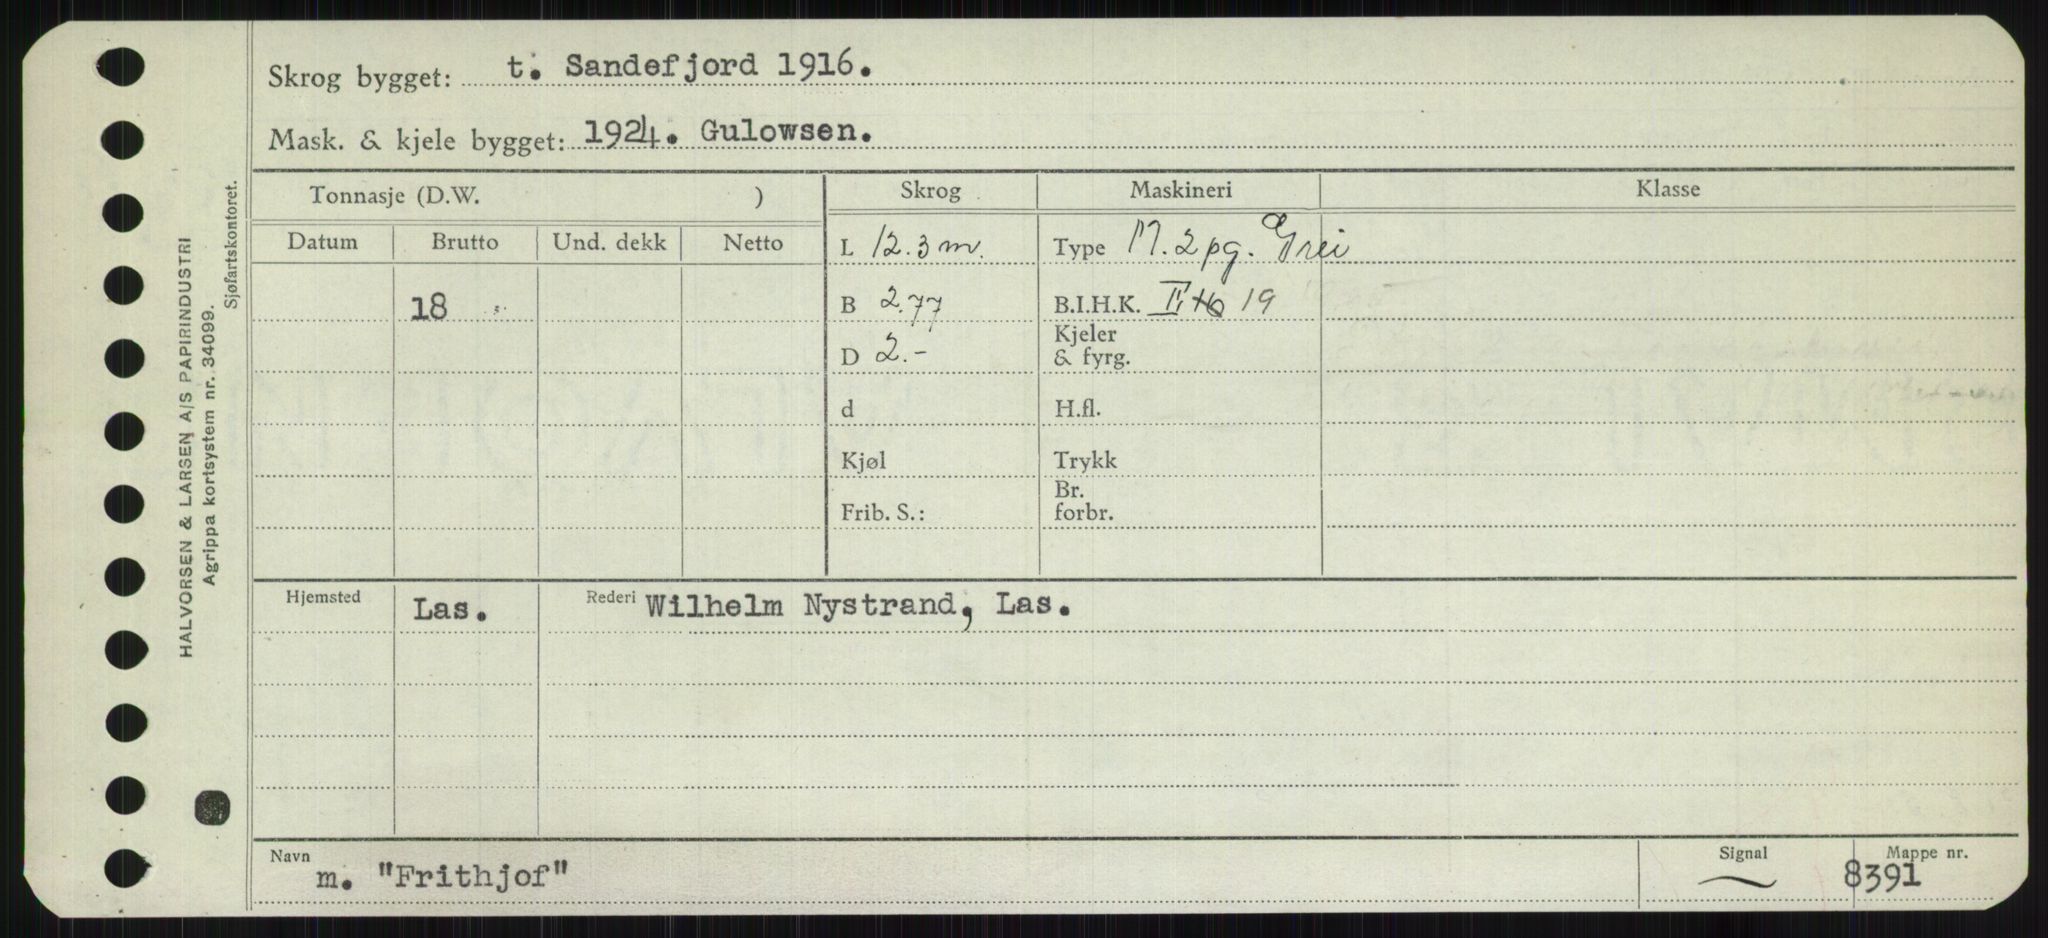 Skrog bygget: t. Sandefjord 1916.
Mask. & kjele bygget: 1924. Gulowsen.
Tonnasje (D.W. )
Skrog Maskineri Klasse
Datum Brutto Und. dekk Netto
L 12.3 m. Type M. 2 pg. Grei
18
B 2.77 B.I.H.K. II, 19
D 2.- Kjeler & fyrg.
d H.fl.
Kjøl Trykk
Frib. S.: Br. forbr.
Hjemsted Las. Rederi Wilhelm Nystrand, Las.
Navn m. "Frithjof" Signal Mappe nr. 8391
HALVORSEN & LARSEN A/S PAPIRINDUSTRI
Agrippa kortsystem nr. 34099.
Sjøfartskontoret.